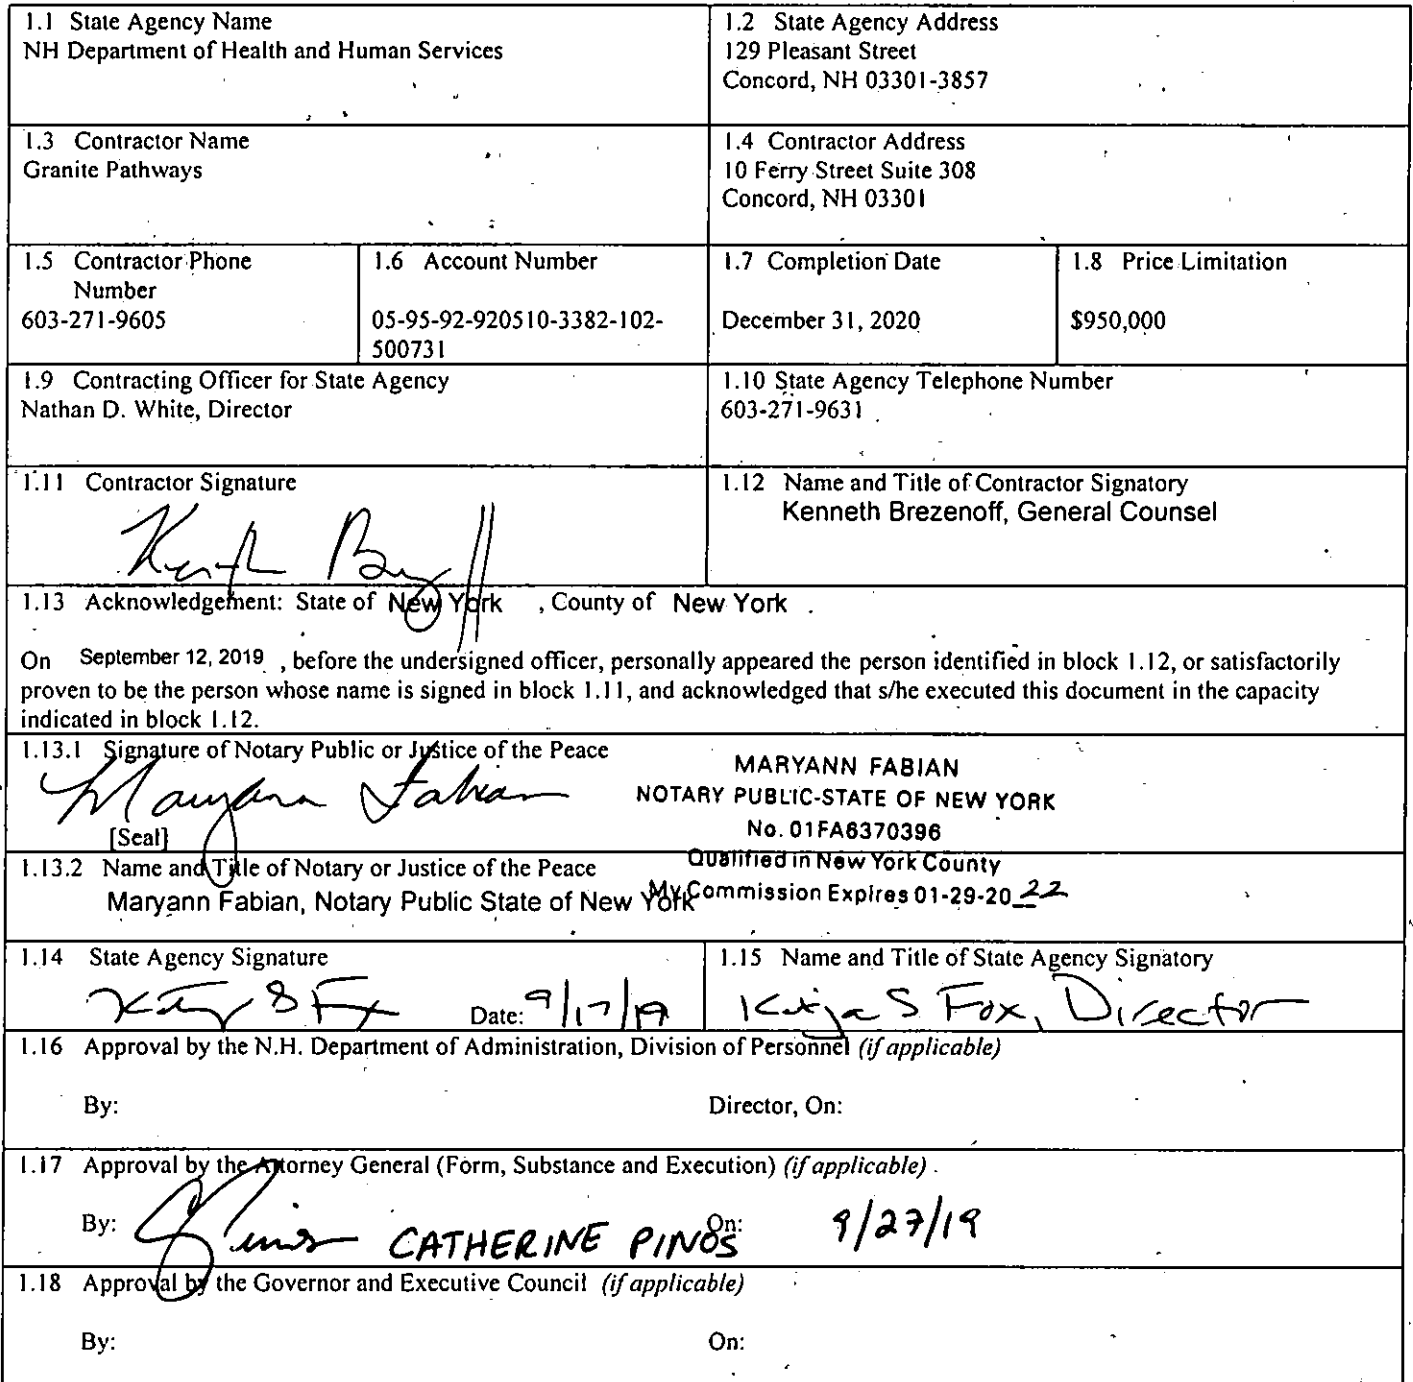 1.1 State Agency Name
NH Department of Health and Human Services
1.2 State Agency Address
129 Pleasant Street
Concord, NH 03301-3857
1.3 Contractor Name
Granite Pathways
1.4 Contractor Address
10 Ferry Street Suite 308
Concord, NH 03301
1.5 Contractor Phone
Number
603-271-9605
1.6 Account Number
05-95-92-920510-3382-102-
500731
1.7 Completion Date
December 31, 2020
1.8 Price Limitation
$950,000
1.9 Contracting Officer for State Agency
Nathan D. White, Director
1.10 State Agency Telephone Number
603-271-9631
1.11 Contractor Signature
1.12 Name and Title of Contractor Signatory
Kenneth Brezenoff, General Counsel
1.13 Acknowledgement: State of New York , County of New York .
On September 12, 2019 , before the undersigned officer, personally appeared the person identified in block 1.12, or satisfactorily
proven to be the person whose name is signed in block 1.11, and acknowledged that s/he executed this document in the capacity
indicated in block 1.12.
1.13.1 Signature of Notary Public or Justice of the Peace
Maryann Fabian
[Seal]
MARYANN FABIAN
NOTARY PUBLIC-STATE OF NEW YORK
No. 01FA6370396
Qualified in New York County
My Commission Expires 01-29-2022
1.13.2 Name and Title of Notary or Justice of the Peace
Maryann Fabian, Notary Public State of New York
1.14 State Agency Signature
Date: 9/17/19
1.15 Name and Title of State Agency Signatory
Katja S Fox, Director
1.16 Approval by the N.H. Department of Administration, Division of Personnel (if applicable)
By: Director, On:
1.17 Approval by the Attorney General (Form, Substance and Execution) (if applicable)
By: CATHERINE PINOS On: 9/27/19
1.18 Approval by the Governor and Executive Council (if applicable)
By: On: